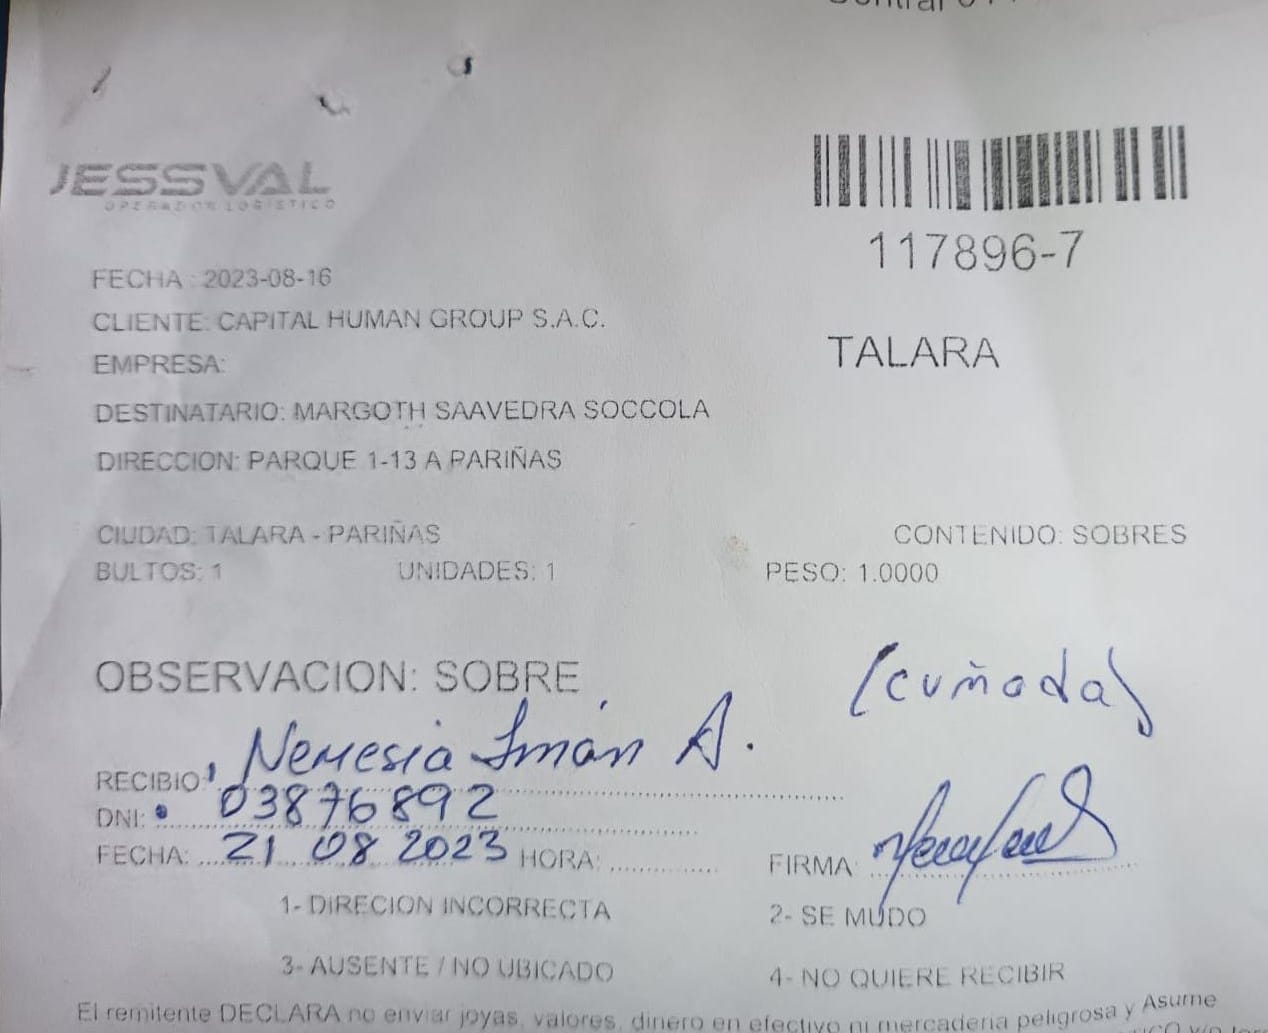 JESSVAL
OPERADOR LOGISTICO
117896-7
FECHA : 2023-08-16
CLIENTE: CAPITAL HUMAN GROUP S.A.C.
TALARA
EMPRESA:
DESTINATARIO: MARGOTH SAAVEDRA SOCCOLA
DIRECCION: PARQUE 1-13 A PARIÑAS
CIUDAD: TALARA - PARIÑAS CONTENIDO: SOBRES
BULTOS: 1 UNIDADES: 1 PESO: 1.0000
OBSERVACION: SOBRE (cuñada)
RECIBIO: Nemesia Imán A.
DNI: 03876892
FECHA: 21 08 2023 HORA: FIRMA:
1- DIRECION INCORRECTA 2- SE MUDO
3- AUSENTE / NO UBICADO 4- NO QUIERE RECIBIR
El remitente DECLARA no enviar joyas, valores, dinero en efectivo ni mercaderia peligrosa y Asume